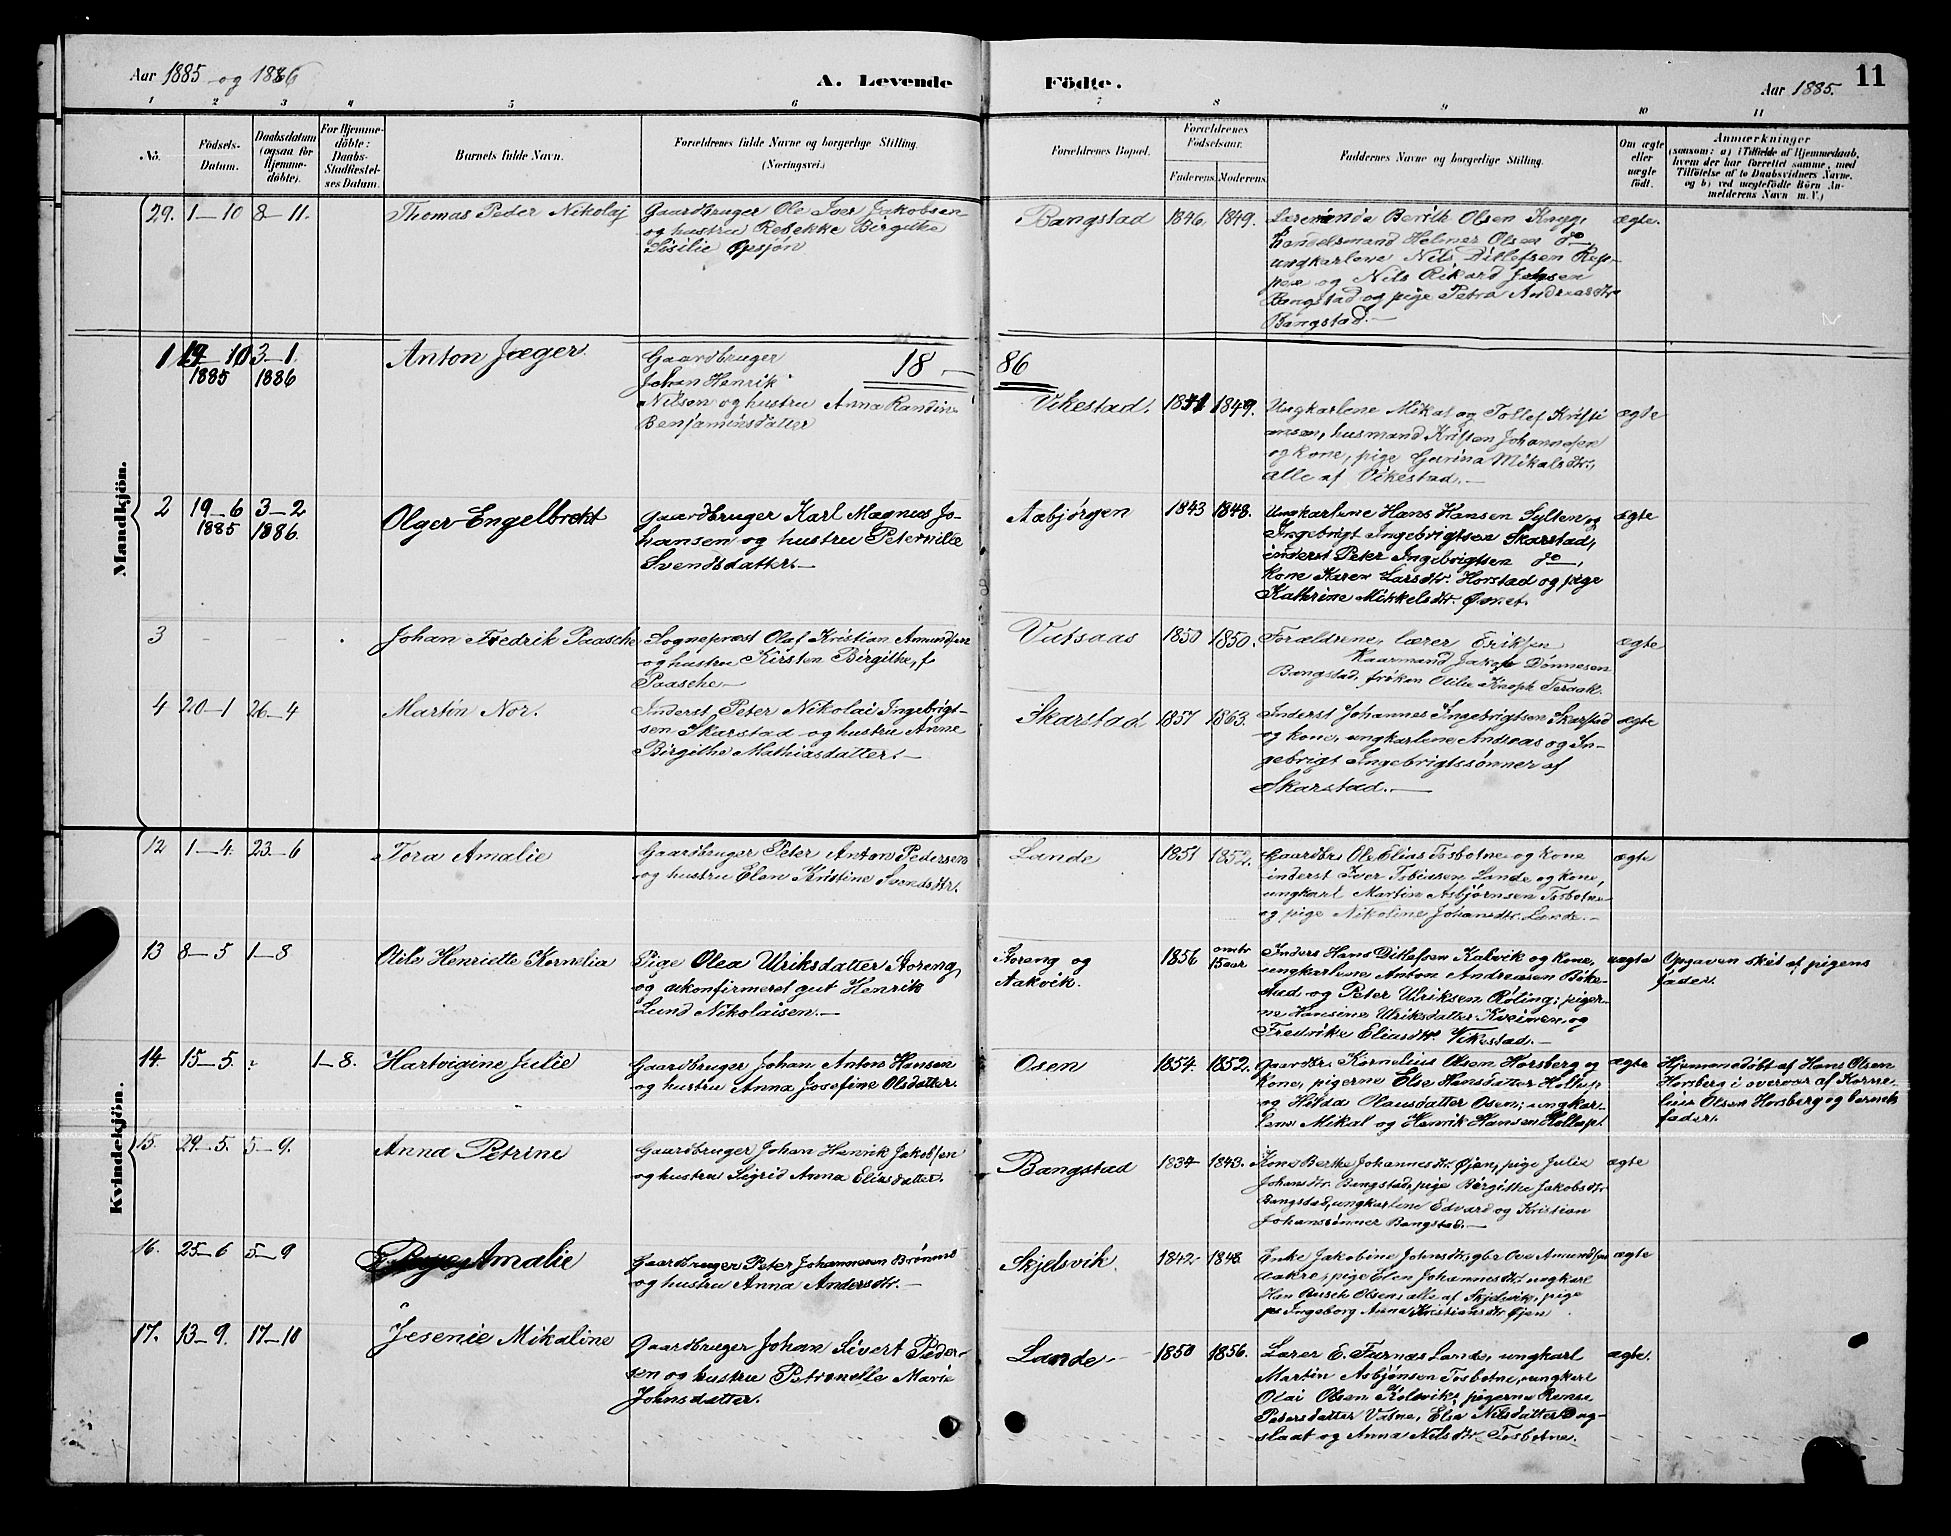 Aar 1885 og 1886
A. Levende Födte.
Aar 1885. 11
1 2 3 4 5 6 7 8 9 10 11
No.
Födsels-
Datum.
Daabsdatum
(ogsaa for
Hjemme-
döbte).
For Hjemme-
döbte:
Daabs-
Stadfæstel-
ses Datum.
Barnets fulde Navn.
Forældrenes fulde Navne og borgerlige Stilling.
(Næringsvei.)
Forældrenes Bopæl.
Forældrenes
Födselsaar.
Faderens. Moderens.
Faddernes Navne og borgerlige Stilling.
Om ægte
eller
uægte
födt.
Anmærkninger
(saasom: a) i Tilfælde af Hjemmedaab,
hvem der har forrettet samme, med
Tilföielse af to Daabsvidners Navne,
og b) ved uægtefödte Börn An-
melderens Navn m. V.)
Mandkjön.
29. 1-10 8-11. Thomas Peder Nikolaj
Gaardbruger Ole Iver Jakobsen
og hustru Rebekke Birgithe
Sisilie Opsjøn
Bangstad 1846. 1849.
Berith Olsen
handelsmand Helmer Olsen do
ungkarlene Nils Ditlefsen Rep-
pen og Nils Rikard Jensen
Bangstad og pige Petra Andreasdtr
Bangstad.-
ægte.
18-86
1 19-10 1885 3-1. 1886 Anton Jæger.
Gaardbruger
Johan Henrik
Nilsen og hustru Anna Randine
Benjaminsdatter
Vikestad. 1851 1849.
Ungkarlene Mikal og Tollef Kristi
ansen, husmand Kristen Johannesen
og kone, pige Gurina Mikalsdtr.,
alle af Vikestad.-
ægte
2 19-6 1885 3-2 1886. Olger Engelbrekt
Gaardbruger Karl Magnus Jo-
hansen og hustru Peternille
Svendsdatter.-
Aabjørgen 1843 1848.
Ungkarlene Hans Hansen Sylten og
Ingebrigt Ingebrigtsen Skarstad,
inderst Peter Ingebrigtsen do-,
kone Karen Larsdtr. Horstad og pige
Kathrine Mikkelsdtr. Øvret.
ægte
3 - - - Johan Fredrik Paasche
Sogneprest Olaf Kristian Amundsen
og hustru Kirsten Birgithe, f
Paasche-
Vatsaas 1850 1850.
Forældrene, lærer Eriksen
Kaarmand Jakob Dønnesen
Bangstad, frøken Otilie Knoph Teraak.
ægte
4 20-1 26-4 Martin Nor.
Inderst Peter Nikolai Ingebrigt-
sen Skarstad og hustru Anne
Birgithe Mathiasdatter.-
Skarstad 1857 1863.
Inderst Johannes Ingebrigtsen Skarstad
og kone, ungkarlene Andreas og In-
gebrigt Ingebrigtssønner af
Skarstad.-
ægte
Kvindekjön.
12 1-4. 23-6 Tora Amalie
Gaardbruger Peter Anton Pedersen
og hustru Elen Kristine Svendsdtr.
Lande 1851 1852.
Gaardbr. Ole Elias Tosbotne og kone
inderst Iver Tobiasen Lande og kone,
ungkarl Martin Asbjørnsen Tosbotne
og pige Nikoline Johansdtr. Lande.-
ægte
13 8-5 1-8 Otile Henriette Kornelia
Pige Olea Ulriksdatter Aoreng,
og ukonfirmeret gut Henrik
Lund Nikolaisen.-
Aoreng og
Aakvik.
1856 omtr 15 aar
Inders Hans Ditlefsen Kalvik og kone,
ungkarlene Anton Andreasen Bøke-
stad og Peter Ulriksen Røling; piger-
ne Hansine Ulriksdatter Kveinen, og
Fredrike Eliasdtr. Vikestad.-
uægte
Opgaven skét af pigens
fader.
14. 15-5. 1-8. Hartvigine Julie
Gaardbruger Johan Anton Hansen
og hustru Anna Josefine Olsdatter.
Osen 1854. 1852.
Gaardbr. Kornelius Olsen Horsberg og
kone, pigerne Else Hansdatter Hollup
og Hilda Olausdatter Osen; ungkar-
lene Mikal og Henrik Hansen Hollup.
ægte
Hjemmedöbt af Hans Olsen
Horsberg i overvær af Korne-
lius Olsen Horsberg og barnets
fader.
15. 29-5. 5-9. Anna Petrine
Gaardbruger Johan Henrik Jakobsen
og hustru Sigrid Anna Eliasdatter.
Bangstad 1834 1843.
Kone Berthe Johannesdtr. Øjen, pige Julie
Johansdtr. Bangstad, pige Birgithe Jakobsdtr
Bangstad, ungkarlene Edvard og Kristian
Johanssønner Bangstad.-
ægte
16. 25-6 5-9 Amalie
Gaardbruger Peter Johannesen Brønmo
og hustru Anna Andersdtr.-
Skjelsvik. 1842 1848
Enke Jakobine Johnsdtr, gbr Ove Amundsen
Aakre, pige Elen Johannesdtr. ungkarl
Han Busch Olsen, alle af Skjelsvik, pige
Ingeborg Anna Kristiansdtr Øjen
ægte
17. 13-9. 17-10 Jesenie Mikaline
Gaardbruger Johan Sivert Peder-
sen og hustru Petronelle Marie
Johnsdatter.
Lande 1850 1856.
Lærer E. Furnæs Lande, ungkarl
Martin Asbjønsen Tosbotne, ungkarl
Olai Olsen Kolsvik, pigerne
Petersdatter Vatne, Else Nilsdatter Dag-
slaat og Anna Nilsdtr Tosbotne.
ægte.